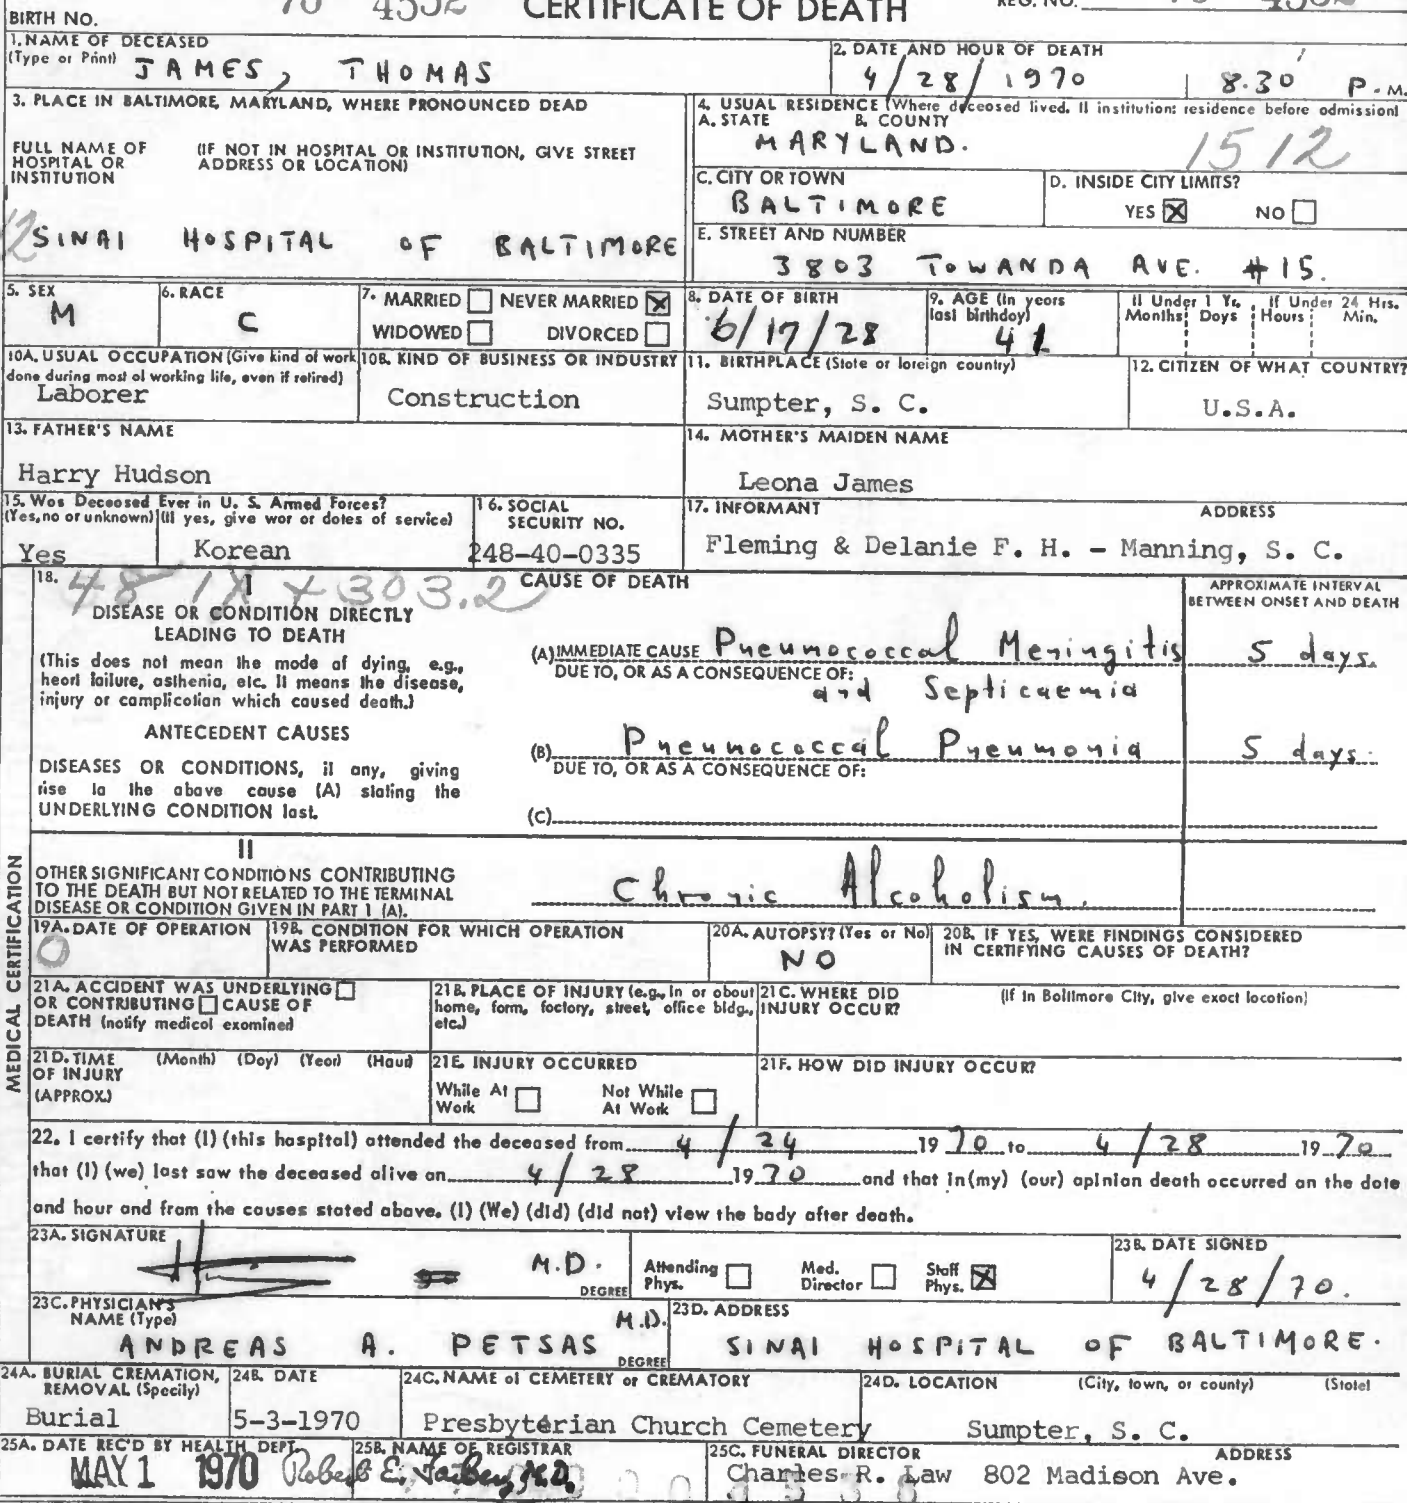 CERTIFICATE OF DEATH
BIRTH NO.
70 4552
REG. NO.
1. NAME OF DECEASED
(Type or Print) JAMES, THOMAS
2. DATE AND HOUR OF DEATH
4/28/1970 8.30 P.M.
3. PLACE IN BALTIMORE, MARYLAND, WHERE PRONOUNCED DEAD
FULL NAME OF HOSPITAL OR INSTITUTION
(IF NOT IN HOSPITAL OR INSTITUTION, GIVE STREET ADDRESS OR LOCATION)
12
SINAI HOSPITAL OF BALTIMORE
4. USUAL RESIDENCE (Where deceased lived. If institution: residence before admission)
A. STATE B. COUNTY
MARYLAND.
1512
C. CITY OR TOWN
BALTIMORE
D. INSIDE CITY LIMITS?
YES ☒ NO ☐
E. STREET AND NUMBER
3803 TOWANDA AVE. #15.
5. SEX
M
6. RACE
C
7. MARRIED ☐ NEVER MARRIED ☒
WIDOWED ☐ DIVORCED ☐
8. DATE OF BIRTH
6/17/28
9. AGE (In years last birthday)
41
If Under 1 Yr. Months Days
If Under 24 Hrs. Hours Min.
10A. USUAL OCCUPATION (Give kind of work done during most of working life, even if retired)
Laborer
10B. KIND OF BUSINESS OR INDUSTRY
Construction
11. BIRTHPLACE (State or foreign country)
Sumpter, S. C.
12. CITIZEN OF WHAT COUNTRY?
U.S.A.
13. FATHER'S NAME
Harry Hudson
14. MOTHER'S MAIDEN NAME
Leona James
15. Was Deceased Ever in U. S. Armed Forces?
(Yes, no or unknown) (If yes, give war or dates of service)
Yes Korean
16. SOCIAL SECURITY NO.
248-40-0335
17. INFORMANT ADDRESS
Fleming & Delanie F. H. - Manning, S. C.
18. 481X + 303.2
CAUSE OF DEATH
APPROXIMATE INTERVAL BETWEEN ONSET AND DEATH
I
DISEASE OR CONDITION DIRECTLY LEADING TO DEATH
(This does not mean the mode of dying, e.g., heart failure, asthenia, etc. It means the disease, injury or complication which caused death.)
(A) IMMEDIATE CAUSE Pneumococcal Meningitis 5 days.
DUE TO, OR AS A CONSEQUENCE OF:
and Septicaemia
ANTECEDENT CAUSES
DISEASES OR CONDITIONS, if any, giving rise to the above cause (A) stating the UNDERLYING CONDITION last.
(B) Pneumococcal Pneumonia 5 days.
DUE TO, OR AS A CONSEQUENCE OF:
(C)
II
OTHER SIGNIFICANT CONDITIONS CONTRIBUTING TO THE DEATH BUT NOT RELATED TO THE TERMINAL DISEASE OR CONDITION GIVEN IN PART 1 (A).
Chronic Alcoholism.
MEDICAL CERTIFICATION
19A. DATE OF OPERATION
0
19B. CONDITION FOR WHICH OPERATION WAS PERFORMED
20A. AUTOPSY? (Yes or No)
NO
20B. IF YES, WERE FINDINGS CONSIDERED IN CERTIFYING CAUSES OF DEATH?
21A. ACCIDENT WAS UNDERLYING ☐ OR CONTRIBUTING ☐ CAUSE OF DEATH (notify medical examined)
21B. PLACE OF INJURY (e.g., in or about home, farm, factory, street, office bldg., etc.)
21C. WHERE DID INJURY OCCUR?
(If in Baltimore City, give exact location)
21D. TIME OF INJURY (APPROX.) (Month) (Day) (Year) (Hour)
21E. INJURY OCCURRED
While At Work ☐ Not While At Work ☐
21F. HOW DID INJURY OCCUR?
22. I certify that (I) (this hospital) attended the deceased from 4/24 1970 to 4/28 1970
that (I) (we) last saw the deceased alive on 4/28 1970 and that in (my) (our) opinion death occurred on the date
and hour and from the causes stated above. (I) (We) (did) (did not) view the body after death.
23A. SIGNATURE
M.D.
DEGREE
Attending Phys. ☐ Med. Director ☐ Staff Phys. ☒
23B. DATE SIGNED
4/28/70.
23C. PHYSICIAN'S NAME (Type)
ANDREAS A. PETSAS M.D.
DEGREE
23D. ADDRESS
SINAI HOSPITAL OF BALTIMORE.
24A. BURIAL CREMATION, REMOVAL (Specify)
Burial
24B. DATE
5-3-1970
24C. NAME of CEMETERY or CREMATORY
Presbyterian Church Cemetery
24D. LOCATION (City, town, or county) (State)
Sumpter, S. C.
25A. DATE REC'D BY HEALTH DEPT.
MAY 1 1970
25B. NAME OF REGISTRAR
Robert E. Farber, M.D.
25C. FUNERAL DIRECTOR ADDRESS
Charles R. Law 802 Madison Ave.